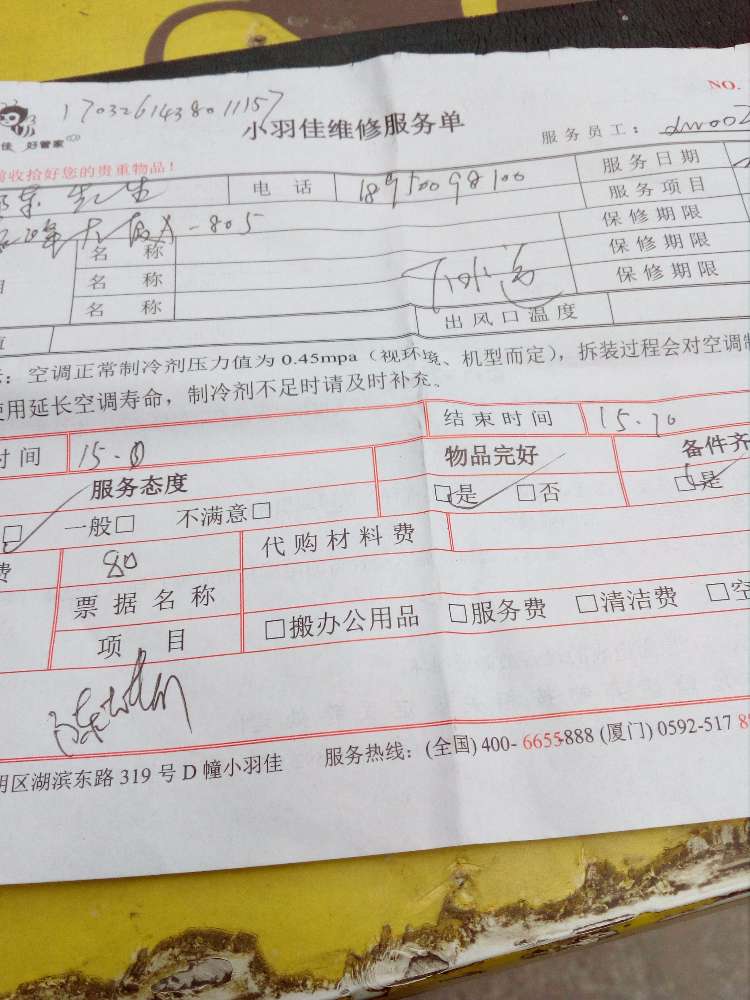 1703261438011157
NO.
佳 好管家
小羽佳维修服务单
服务员工:
前收拾好您的贵重物品!
先生 电 话 18950098100 服务日期
服务项目
-805 保修期限
名 称 保修期限
名 称 下水道 保修期限
名 称
出风口温度
:空调正常制冷剂压力值为 0.45mpa(视环境、机型而定),拆装过程会对空调制
使用延长空调寿命,制冷剂不足时请及时补充。
时间 15.0 结束时间 15.70
服务态度 物品完好 备件齐
□ 一般□ 不满意□ □是 □否 □是
费 80 代购材料费
票据名称
项 目 □搬办公用品 □服务费 □清洁费 □空
明区湖滨东路 319 号 D 幢小羽佳 服务热线:(全国) 400- 6655-888 (厦门) 0592-517